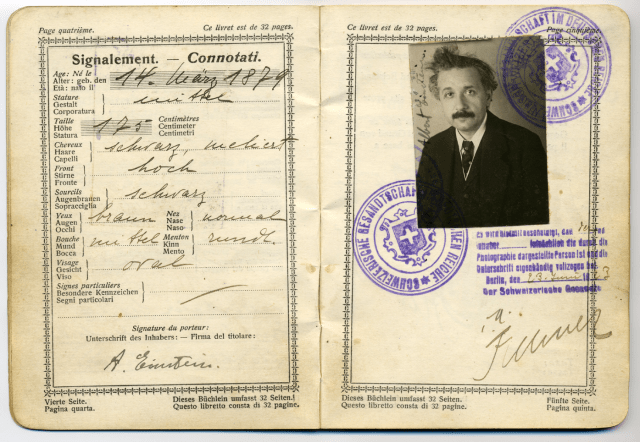 Page quatrième. Ce livret est de 32 pages.
Signalement. — Connotati.
Age: Né le
Alter: geb. den 14. März 1879
Età: nato il
Stature
Gestalt mittel
Corporatura
Taille Centimètres
Höhe 175 Centimeter
Statura Centimetri
Cheveux
Haare schwarz, meliert
Capelli
Front
Stirne hoch
Fronte
Sourcils
Augenbrauen schwarz
Sopracciglia
Yeux Nez
Augen braun Nase normal
Occhi Naso
Bouche Menton
Mund mittel Kinn rund.
Bocca Mento
Visage
Gesicht oval
Viso
Signes particuliers
Besondere Kennzeichen
Segni particolari
Signature du porteur:
Unterschrift des Inhabers: — Firma del titolare:
A. Einstein.
Vierte Seite. Dieses Büchlein umfasst 32 Seiten.
Pagina quarta. Questo libretto consta di 32 pagine.
Ce livret est de 32 pages. Page cinquième.
SCHWEIZERISCHE GESANDTSCHAFT IM DEUTSCHEN REICHE
Es wird hiermit bescheinigt, dass
die durch die
Photographie dargestellte Person ist und die
Unterschrift eigenhändig vollzogen hat.
Berlin, den
Der Schweizerische Gesandte
Dieses Büchlein umfasst 32 Seiten. Fünfte Seite.
Questo libretto consta di 32 pagine. Pagina quinta.